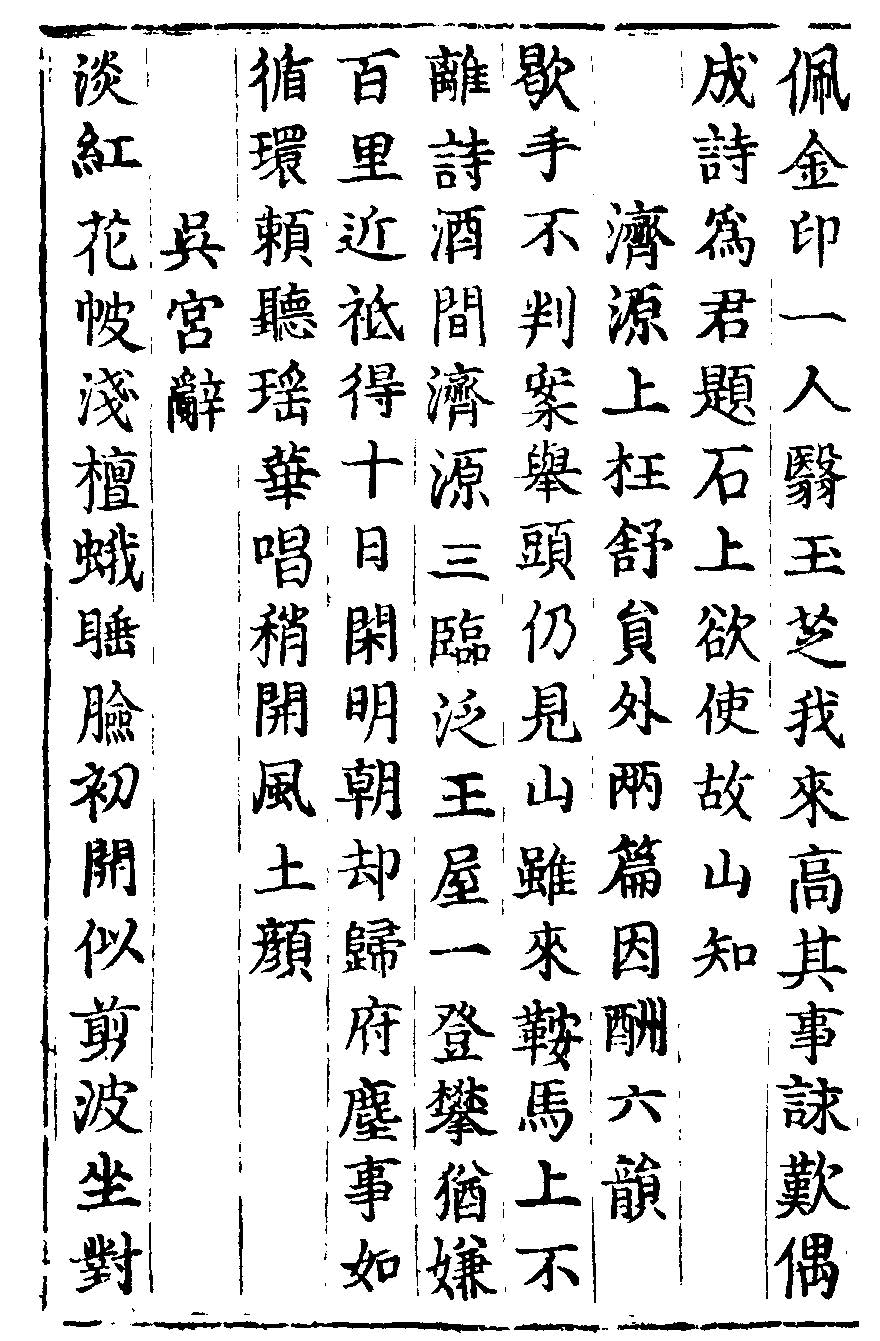 佩金印一人翳玉芝我來高其事詠歎偶
成詩爲君題石上欲使故山知
濟源上枉舒貟外兩篇因酬六韻
歇手不判案舉頭仍見山雖來鞍馬上不
離詩酒間濟源三臨泛王屋一登攀猶嫌
百里近祗得十日閑明朝却歸府塵事如
循環賴聽瑶華唱稍開風土顏
吳宮辭
淡紅花帔淺檀蛾睡臉初開似剪波坐對